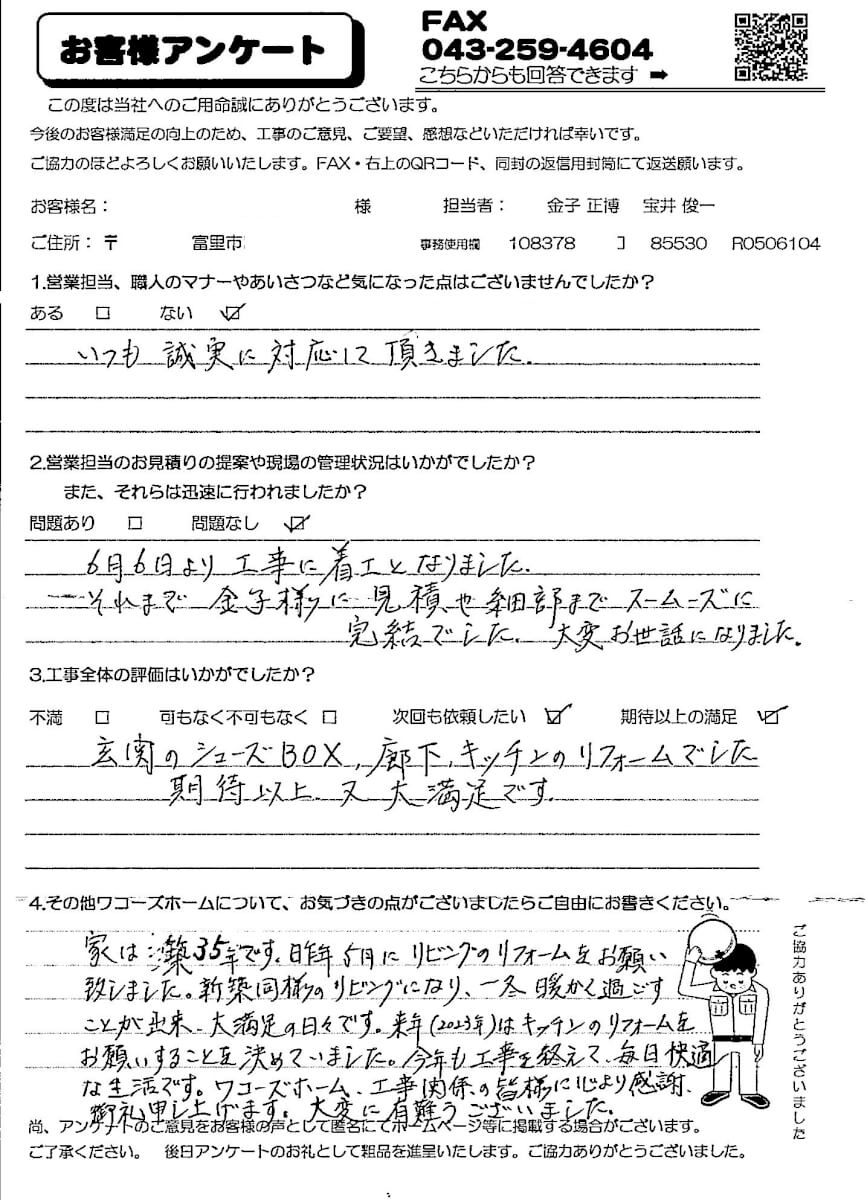 お客様アンケート
FAX
043-259-4604
こちらからも回答できます ➡
この度は当社へのご用命誠にありがとうございます。
今後のお客様満足の向上のため、工事のご意見、ご要望、感想などいただければ幸いです。
ご協力のほどよろしくお願いいたします。FAX・右上のQRコード、同封の返信用封筒にて返送願います。
お客様名： 様 担当者： 金子 正博 宝井 俊一
ご住所：〒 富里市 事務使用欄 108378 コ 85530 R0506104
1.営業担当、職人のマナーやあいさつなど気になった点はございませんでしたか？
ある □ ない ☑
いつも誠実に対応して頂きました.
2.営業担当のお見積りの提案や現場の管理状況はいかがでしたか？
また、それらは迅速に行われましたか？
問題あり □ 問題なし ☑
6月6日より工事に着工となりました.
それまで金子様に見積や細部までスームーズに
完結でした. 大変お世話になりました.
3.工事全体の評価はいかがでしたか？
不満 □ 可もなく不可もなく □ 次回も依頼したい ☑ 期待以上の満足 ☑
玄関のシューズBOX, 廊下, キッチンのリフォームでした
期待以上 又 大満足です.
4.その他ワコーズホームについて、お気づきの点がございましたらご自由にお書きください。
家は築35年です。昨年5月にリビングのリフォームをお願い
致しました。新築同様のリビングになり、一冬暖かく過ごす
ことが出来、大満足の日々です。来年(2023年)はキッチンのリフォームを
お願いすることを決めていました。今年も工事を終えて、毎日快適
な生活です。ワコーズホーム、工事関係の皆様に心より感謝、
御礼申し上げます。大変に有難うございました。
尚、アンケートのご意見をお客様の声として匿名にてホームページ等に掲載する場合がございます。
ご了承ください。 後日アンケートのお礼として粗品を進呈いたします。ご協力ありがとうございました。
ご協力ありがとうございました